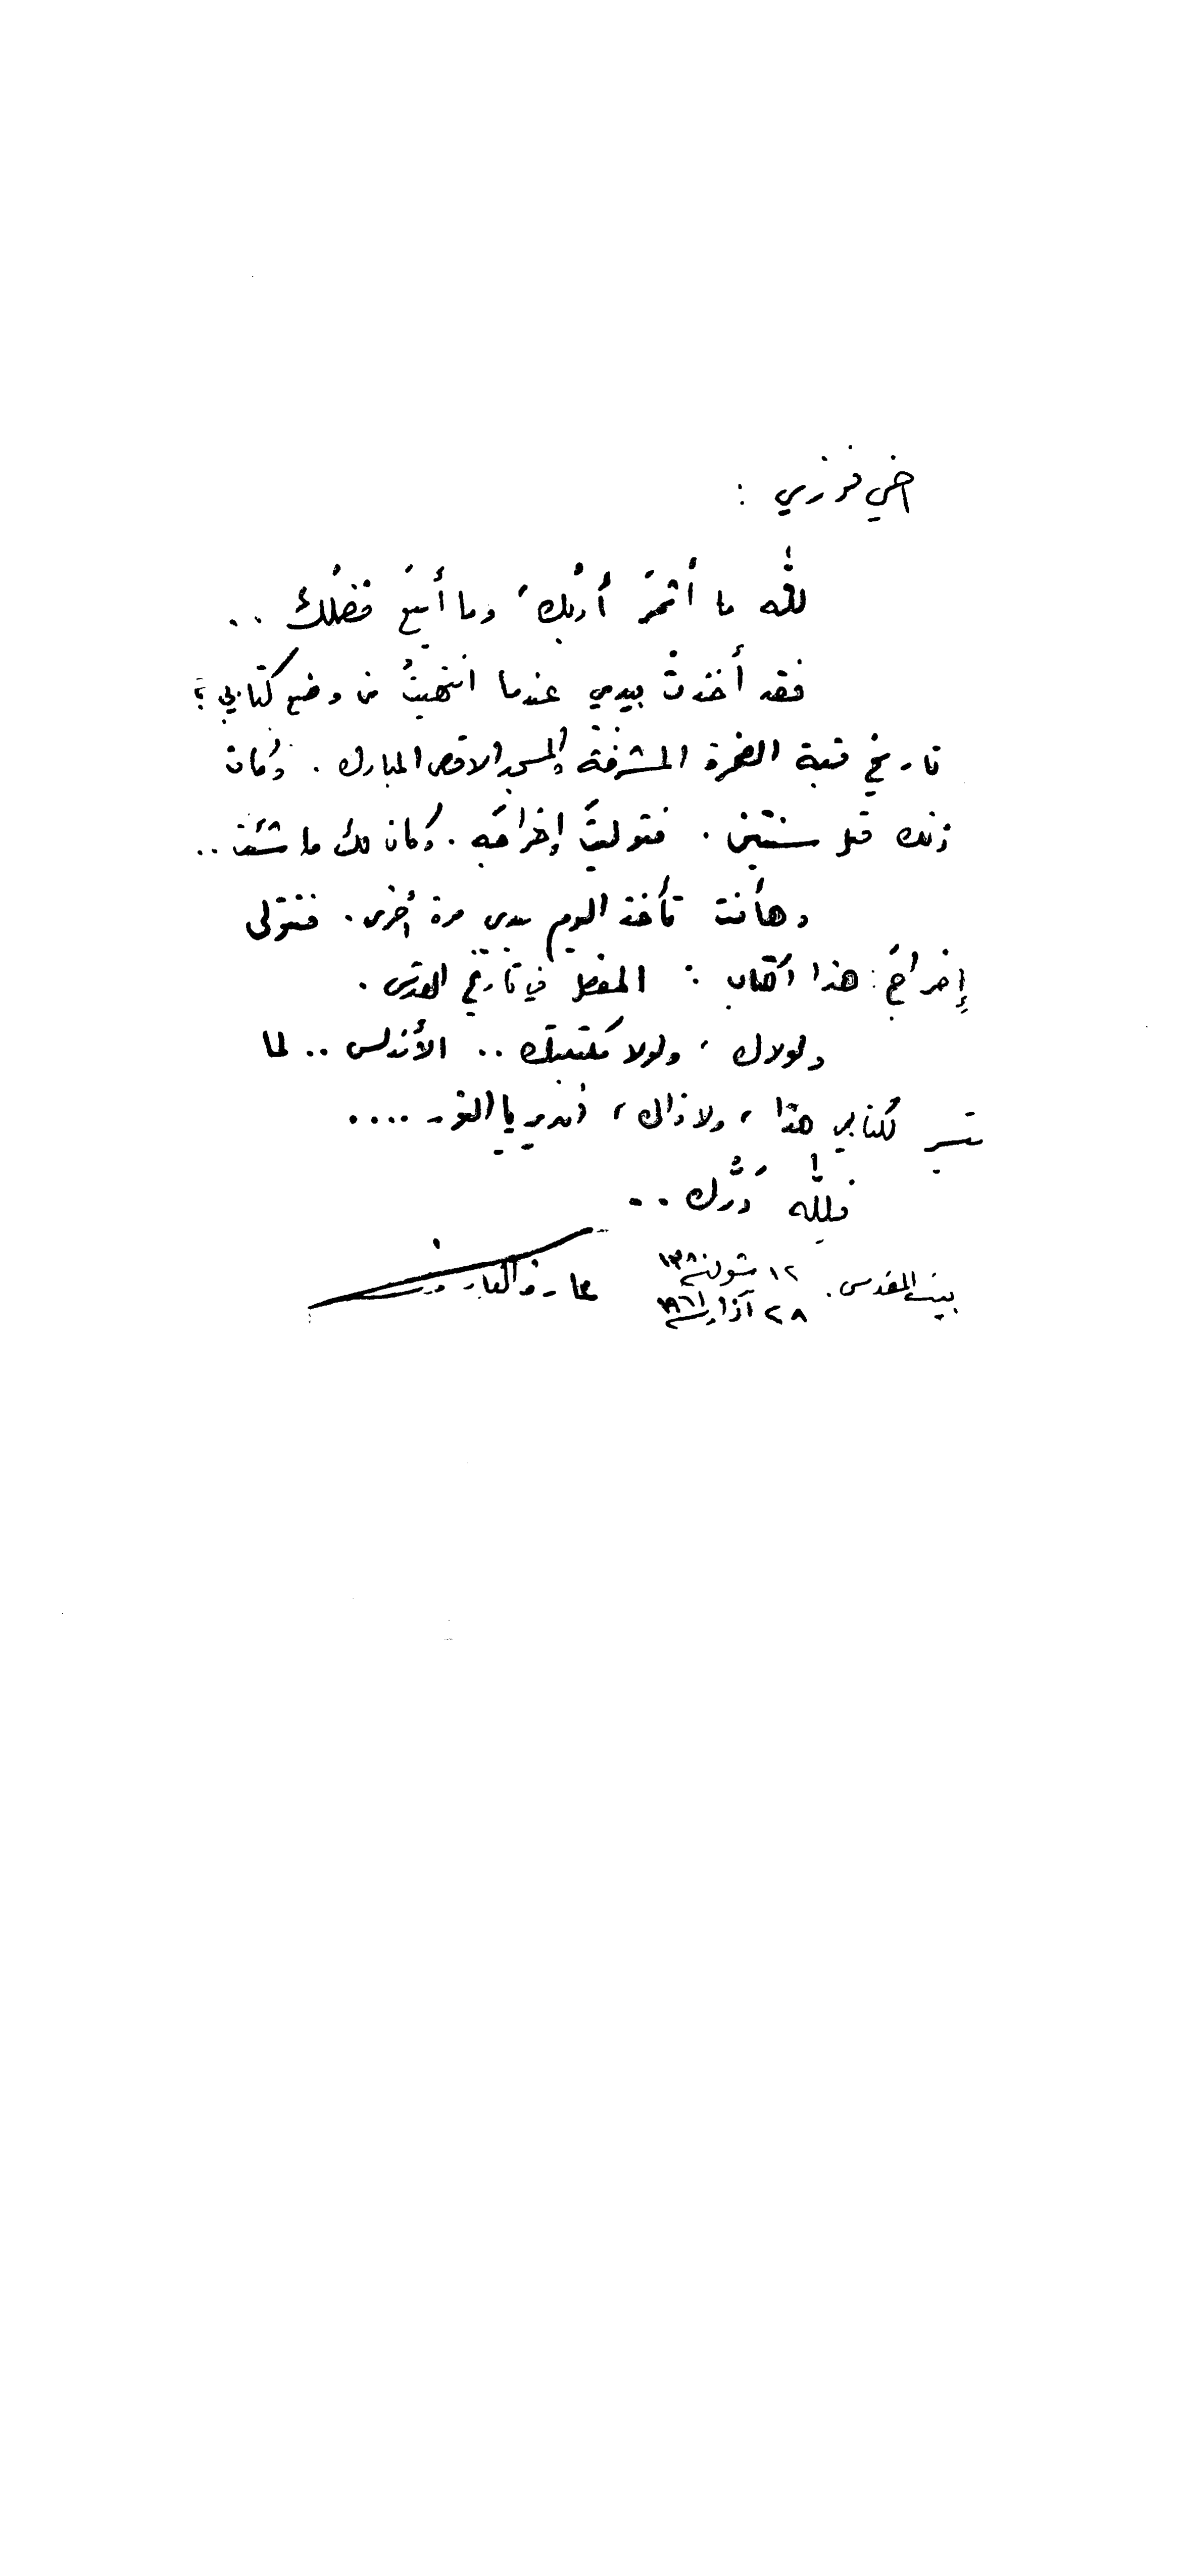 اخي فوزي :
لله ما أثمرَ أدبُك، وما أينعَ فضلُك ..
فقد أخذتَ بيدي عندما انتهيتُ من وضع كتابي؛
تاريخ قبة الصخرة المشرفة والمسجد الاقصى المبارك . وكان
ذلك قبل سنتين . فتوليتَ إخراجَه . وكان لك ما شئت ..
وهأنت تأخذ اليوم بيدي مرة أخرى . فتتولى
إخراجَ : هذا الكتاب : المفصل في تاريخ القدس .
ولولاك ، ولولا مكتبتك .. الأندلس .. لما
تيسر لكتابي هذا ، ولا ذاك ، أن يريا النور ....
فلله دَرُّك ..
بيت المقدس . ١٢ شوال سنة ١٣٨٠ عارف العارف
٢٨ آذار سنة ١٩٦١